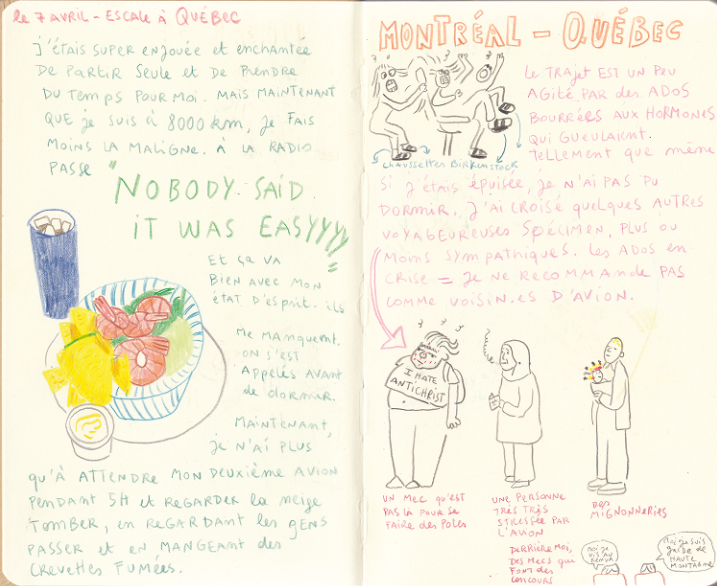 le 7 AVRIL - ESCALE À QUÉBEC
j'ÉTAIS SUPER ENJOUÉE et ENCHANTÉE
DE PARTIR SEULE ET DE PRENDRE
DU TEMPS POUR MOI. MAIS MAINTENANT
QUE je SUIS à 8000 km, je FAIS
MOINS LA MALIGNE. À LA RADIO
PASSE
"NOBODY SAID
IT WAS EASYYYY"
ET ÇA VA
BIEN AVEC MON
ÉTAT D'ESPRIT. ils
ME MANQUENT.
ON S'EST
APPELÉS AVANT
de DORMIR.
MAINTENANT,
je N'AI PLUS
QU'À ATTENDRE MON DEUXIÈME AVION
PENDANT 5H et REGARDER la NEIGE
TOMBER, en REGARDANT les GENS
PASSER et EN MANGEANT des
CREVETTES FUMÉES.
MONTRÉAL - QUÉBEC
Le TRAJET EST UN PEU
AGITÉ PAR des ADOS
BOURRÉES AUX HORMONES
QUI GUEULAIENT.
TELLEMENT QUE même
CHAUSSETTES BIRKENSTOCK
SI J'ÉTAIS ÉPUISÉE, je N'AI PAS PU
DORMIR. J'AI CROISÉ QUELQUES AUTRES
VOYAGEUREUSES SPÉCIMEN, PLUS OU
MOINS SYMPATHIQUES. les ADOS en
CRISE = Je NE RECOMMANDE PAS
COMME VOISIN.ES D'AVION.
I HATE
ANTICHRIST
UN MEC QU'EST
PAS LÀ POUR SE
FAIRE des POTES
UNE PERSONNE
TRÈS TRÈS
STRESSÉE PAR
L'AVION
DES
MIGNONNERIES
DERRIÈRE MOI,
DES MECS QUI
FONT des
CONCOURS
MOI JE
VIS AU
Moi je suis
guide de
HAUTE
MONTAGNE